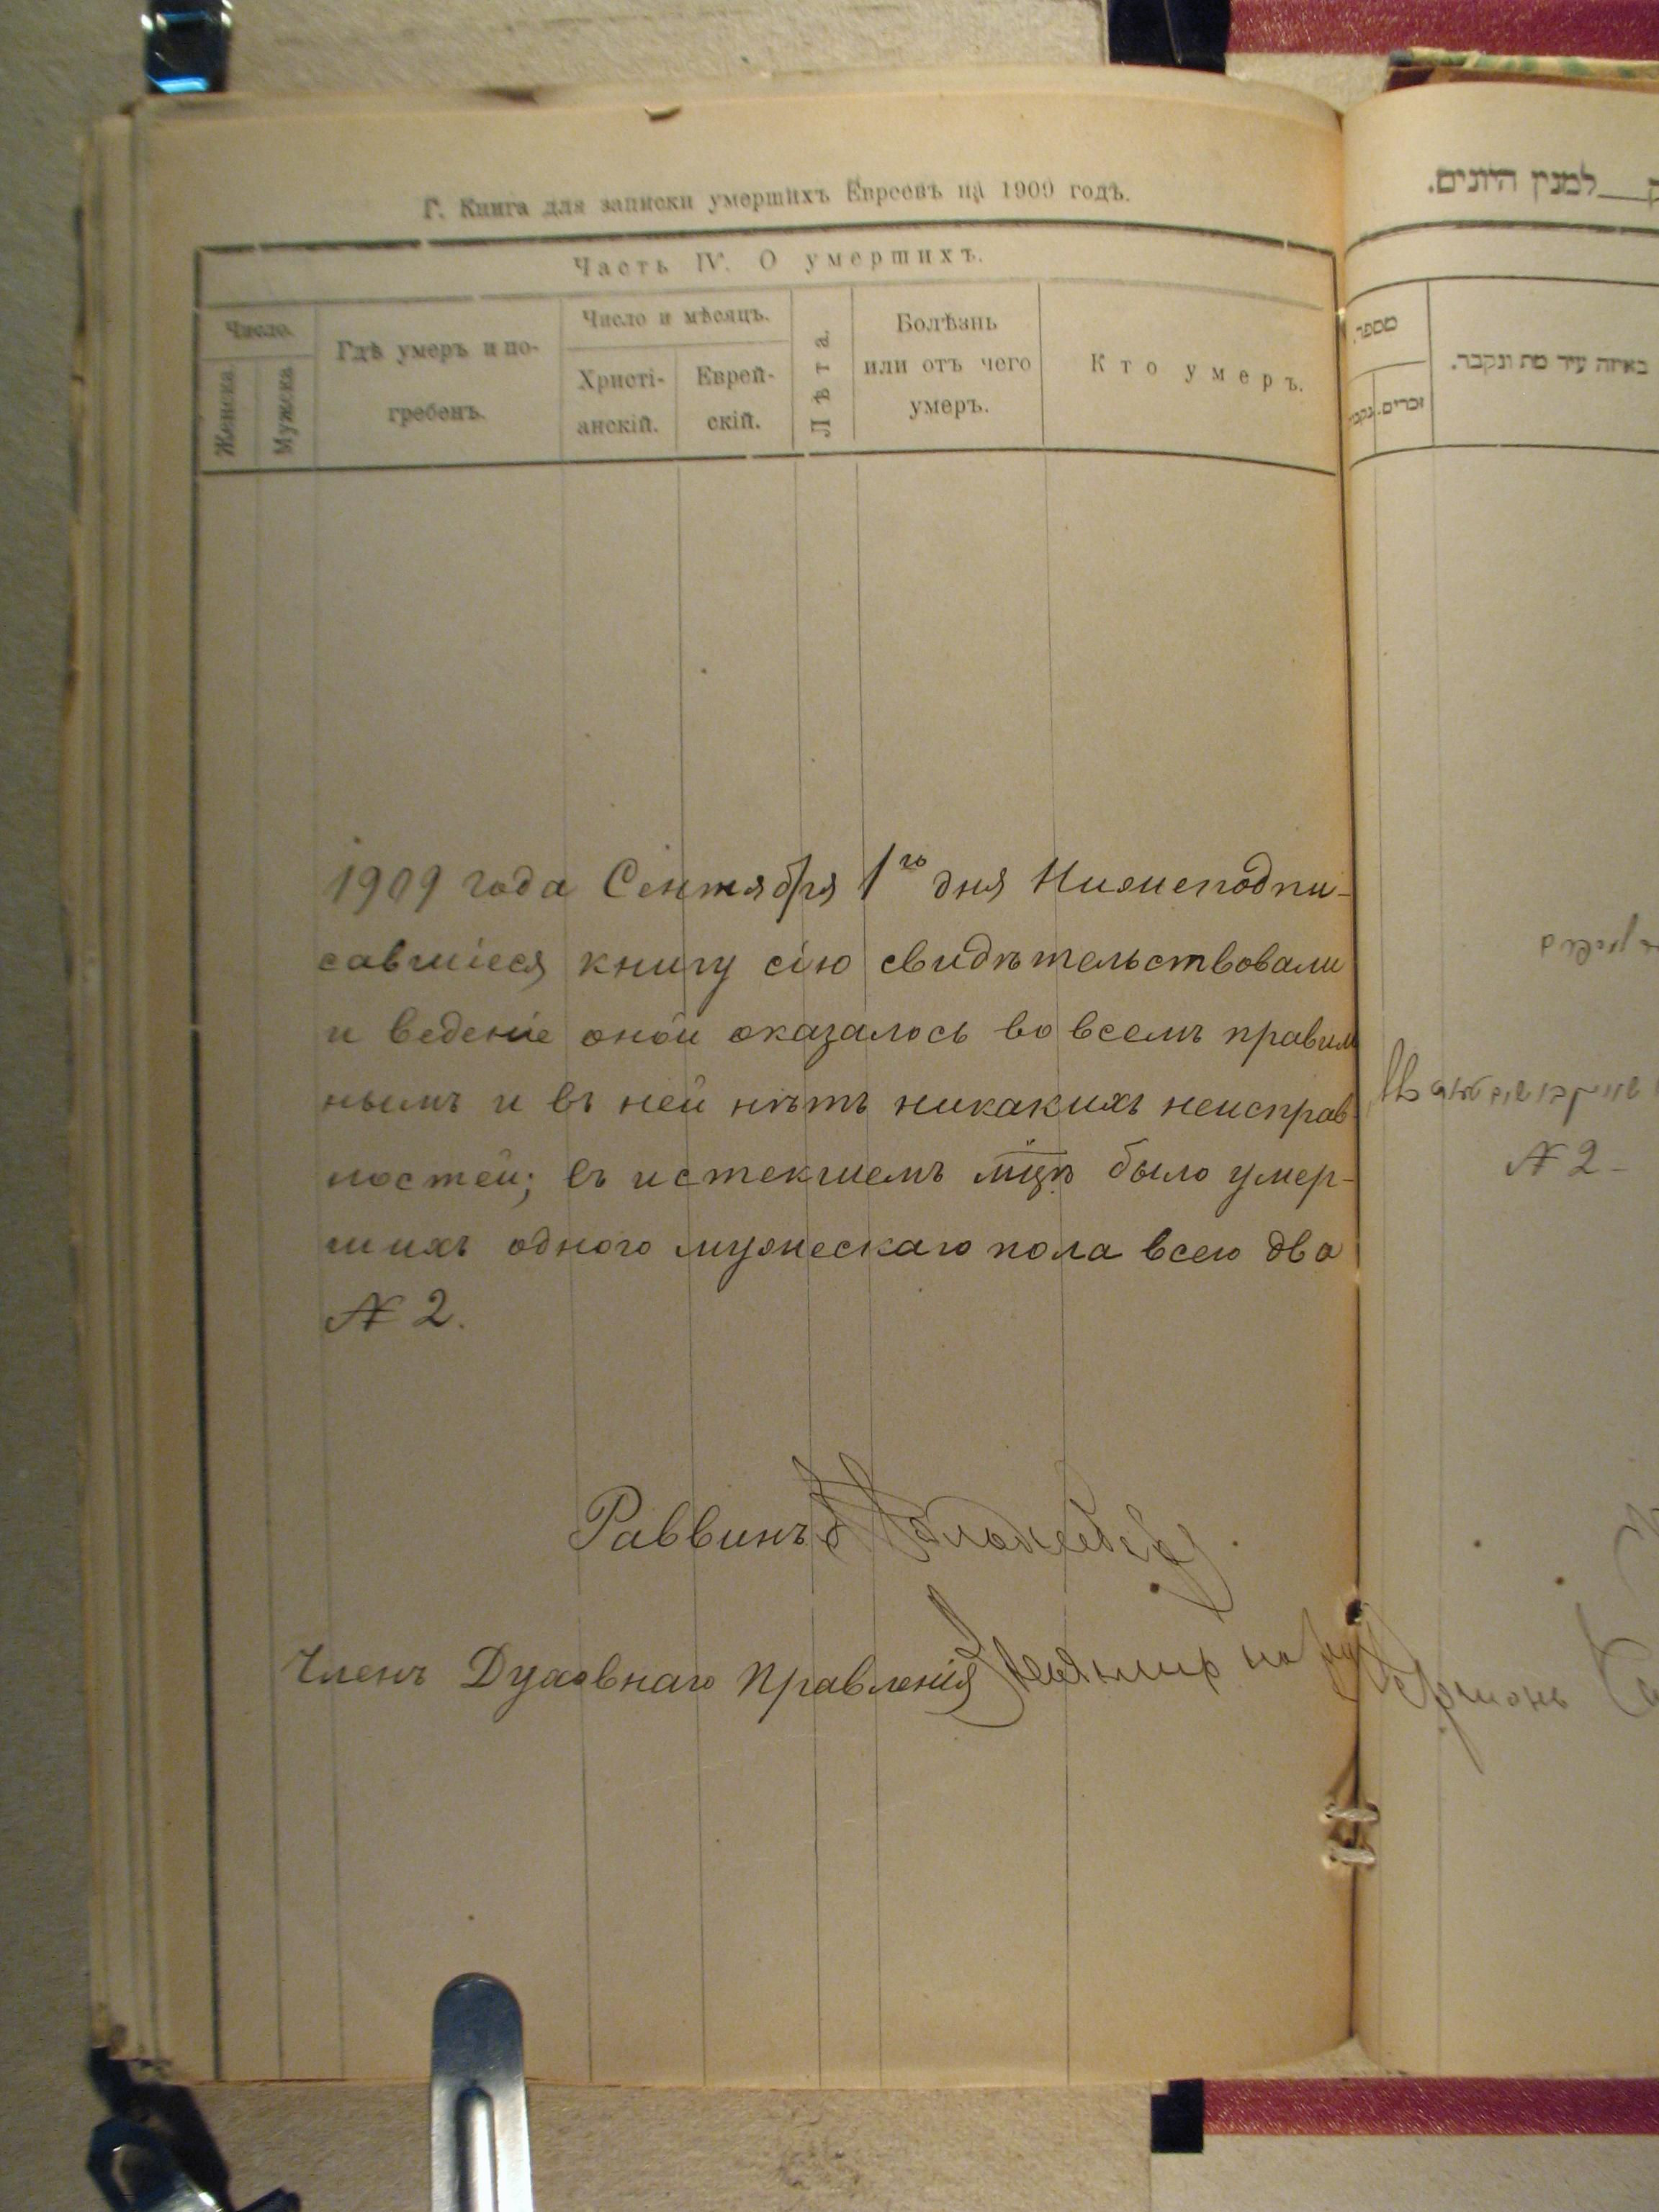 Г. Книга для записки умершихъ Евреевъ на 1909 годъ.
Часть IV. О умершихъ.
Число.
Женска
Мужска
Гдѣ умеръ и по-
гребенъ.
Число и мѣсяцъ.
Христі-
анскій.
Еврей-
скій.
Лѣта.
Болѣзнь
или отъ чего
умеръ.
Кто умеръ.
1909 года Сентября 1го дня Нижеподпи-
савшіеся книгу сію свидѣтельствовали
и веденіе оной оказалось во всемъ правил
нымъ и въ ней нѣтъ никакихъ неисправ-
ностей; въ истекшемъ мцѣ было умер-
шихъ одного мужескаго пола всего два
№ 2.
Раввинъ
Членъ Духовнаго Правленія
למנין היונים.
מספר
זכרים.
באיזה עיר מת ונקבר.
№ 2-